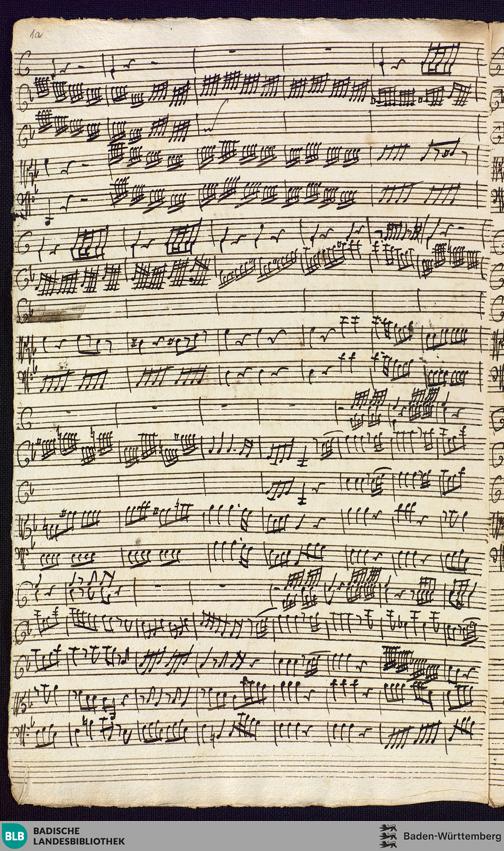 BLB
BADISCHE
LANDESBIBLIOTHEK
Baden-Württemberg